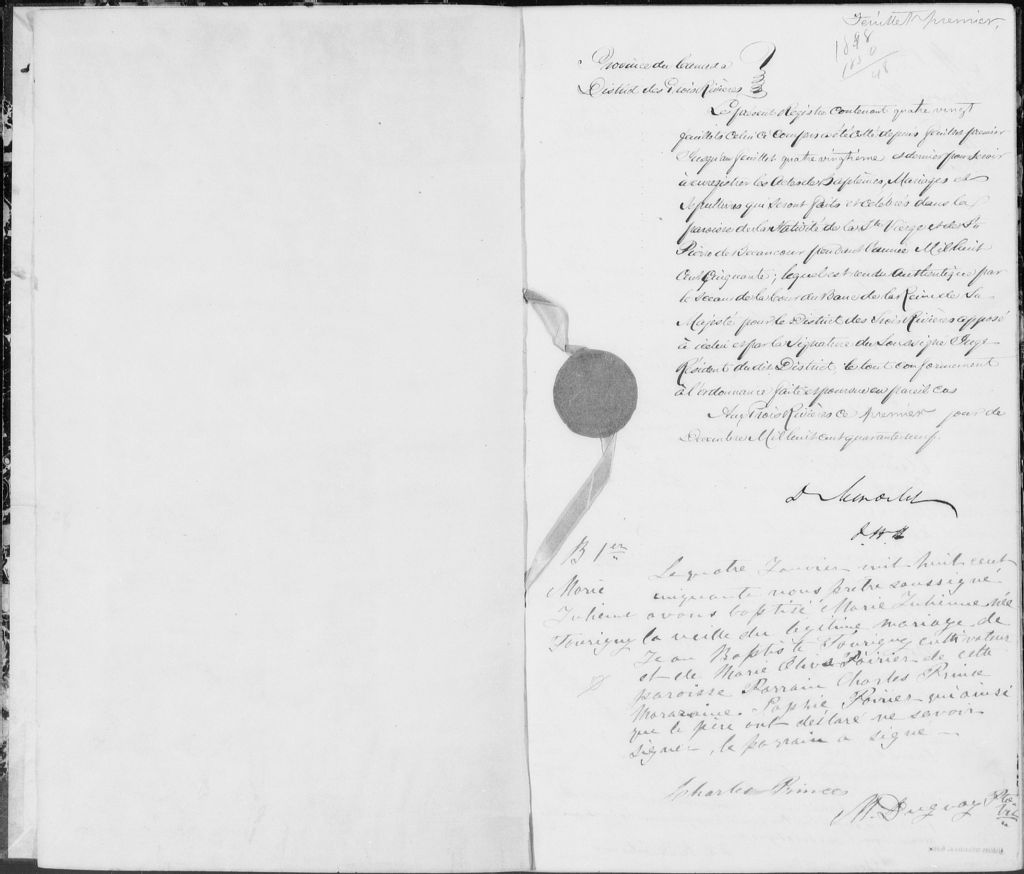 Feuillet premier,
1898
1850
48
Province du Canada
District des Trois Rivières
Le présent Registre contenant quatre vingt
feuillets celui ci compris a été coté depuis feuillet premier
Jusqu'au feuillet quatre vingtième et dernier pour servir
à enregistrer les Actes de Baptêmes, Mariages et
Sépultures qui seront faits et célébrés dans la
paroisse de la Nativité de la Ste Vierge et de St
Pierre de Becancour pendant l'année Mil huit
Cent Cinquante; lequel est rendu Authentique par
le Sceau de la Cour du Banc de la Reine de Sa
Majesté pour le District des Trois Rivières apposé
à celui et par la Signature du Soussigné Juge
Résident du dit District le tout conformément
à l'ordonnance faite et pourvue en pareil cas
Aux Trois Rivières ce Premier jour de
Decembre Mil huit cent quarante neuf.
D Mondelet
B 1er
Marie
Julienne
Tourigny
Le quatre Janvier mil huit cent
cinquante nous prêtre soussigné
avons baptisé Marie Julienne née
la veille du légitime mariage de
Jean Baptiste Tourigny cultivateur
et de Marie Olive Poirier de cette
paroisse Parrain Charles Prince
Marraine Sophie Poirier qui ainsi
que le père ont déclaré ne savoir
signer, le parrain a signé —
Charles Prince
M. Dugnay Ptre